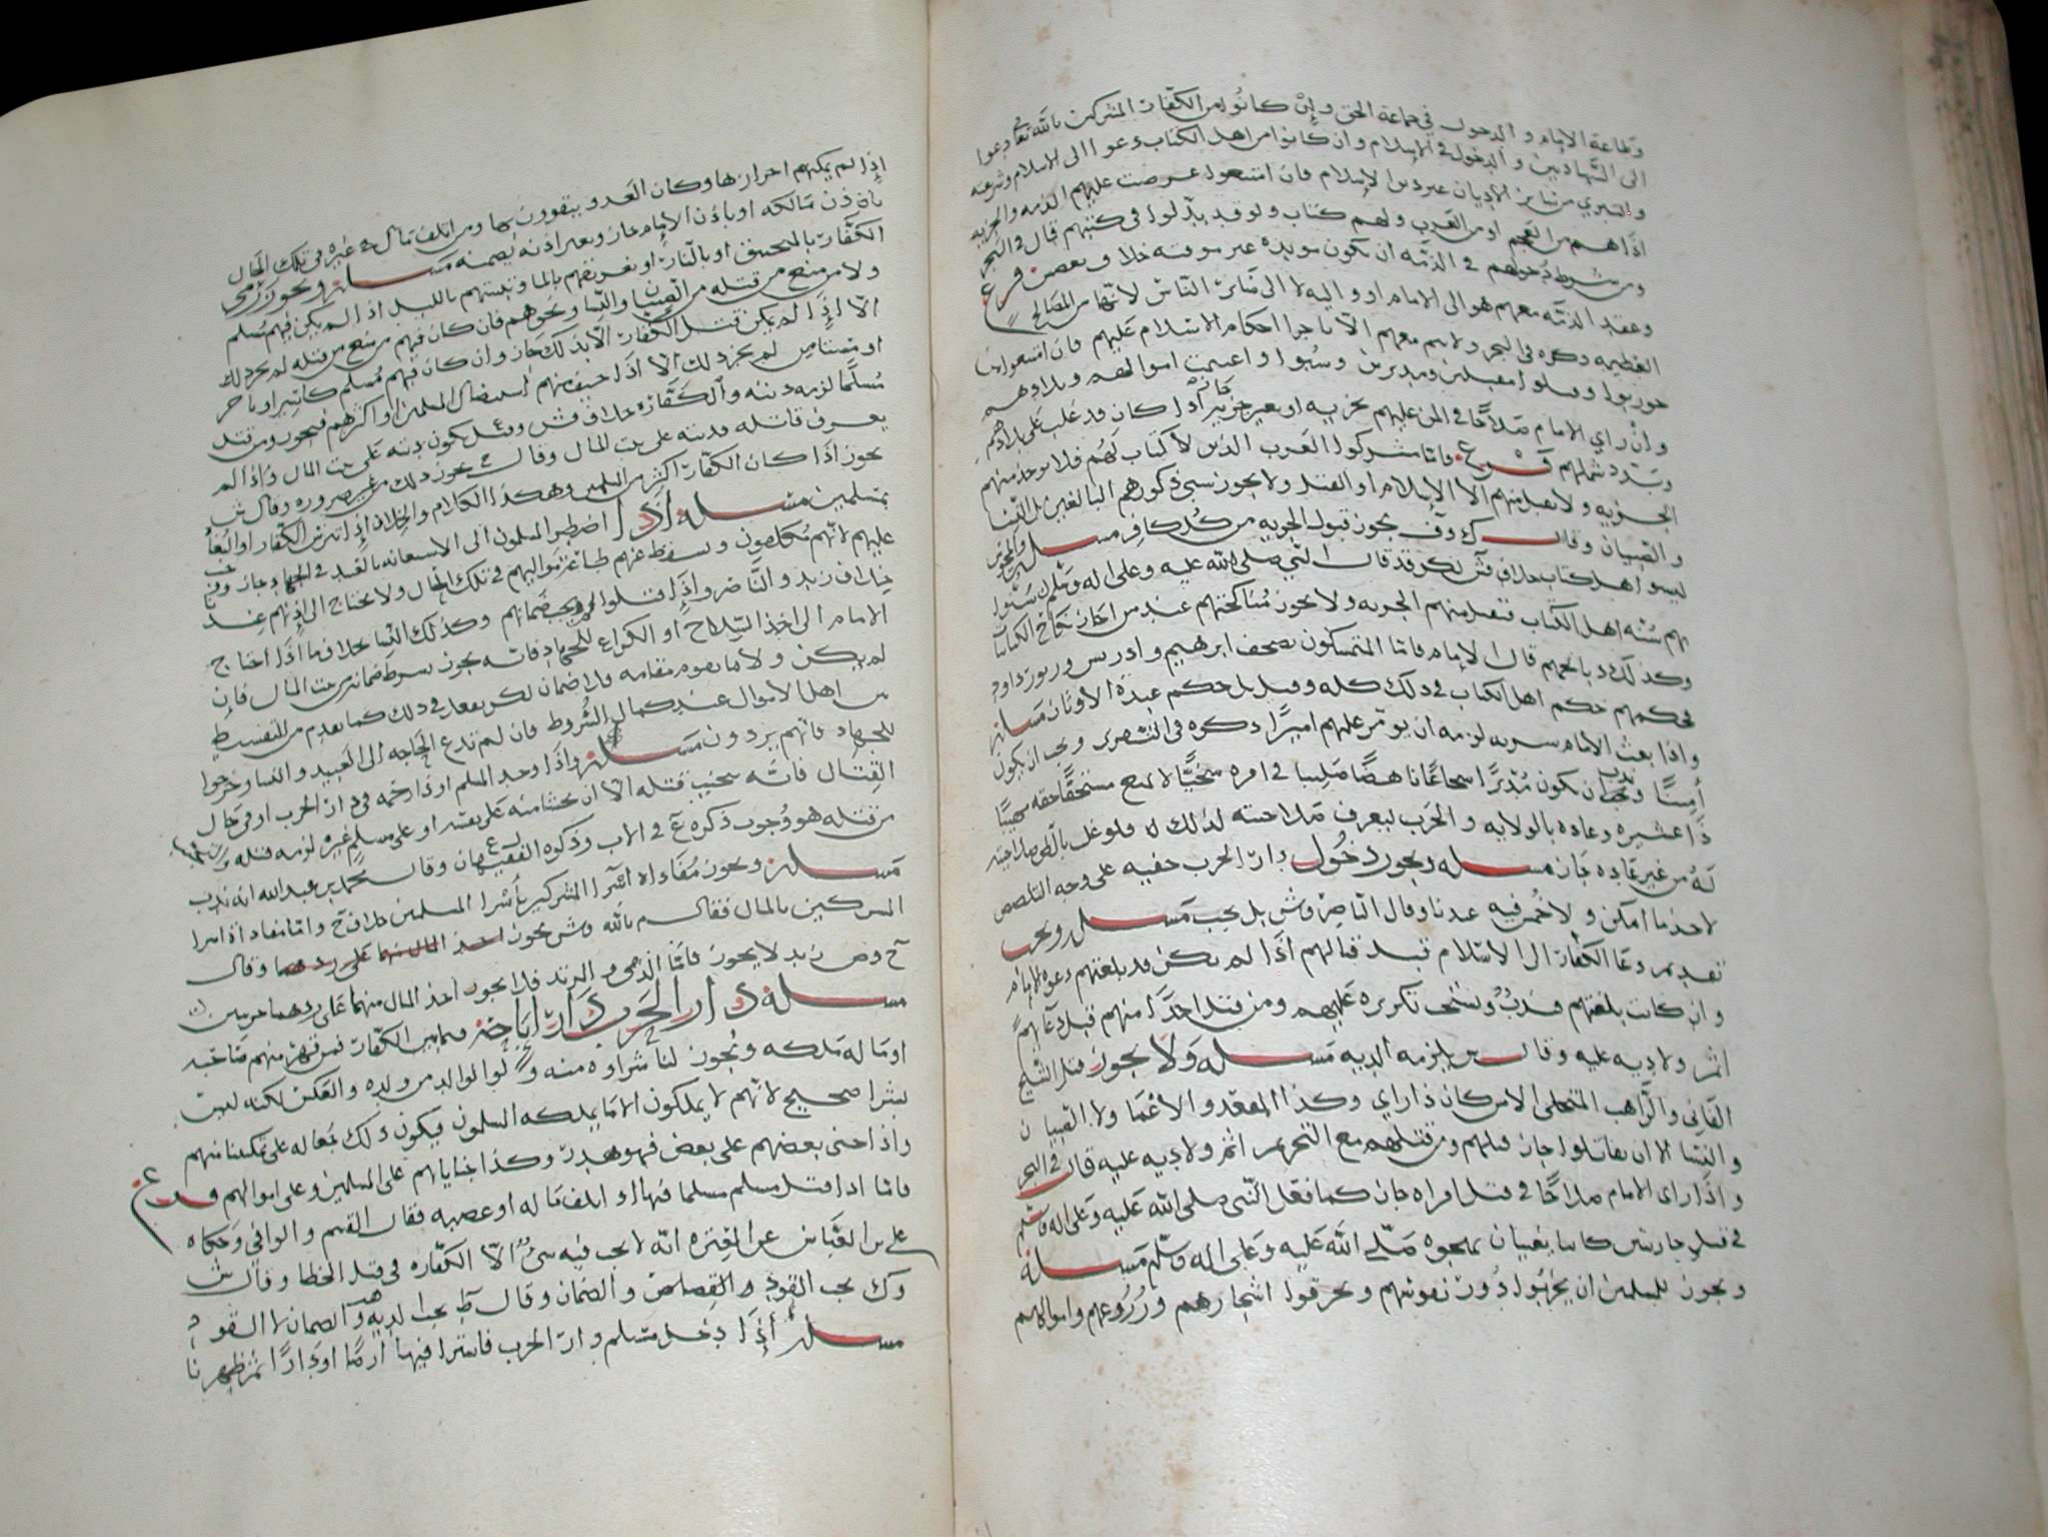 وطاعة الإمام والدخول في جماعة الحق وإن كانوا من الكفار المشركين بالله تعالى دعوا
الى الشهادتين والدخول في الإسلام وان كانوا من اهل الكتاب دعوا الى الإسلام وشرعه
والتبري من سائر الأديان غير دين الإسلام فان امتنعوا عرضت عليهم الذمه والجزيه
اذا هم من العجم او من العرب ولهم كتاب ولو قد بدلوا في كتبهم قال في البحر
ومن شرط دخولهم في الذمه ان تكون مويده غير موقته خلاف بعض فرع
وعقد الذمه معهم هو الى الامام او واليه لا الى سائر الناس لانها من المصالح
العظيمه ذكره في البحر ولا يتم معهم الا باجرا احكام الإسلام عليهم فان امتنعوا من
حوربوا وقتلوا مقبلين ومدبرين وسبوا واغنمت اموالهم وبلادهم
وان راي الامام صلاحا في المن عليهم بجزيه او بغير جزيه جاز اذا كان قد غلب على بلادهم
وبدد شملهم فرع واما مشركوا العرب الذين لا كتاب لهم فلا يوخذ منهم
الجزيه ولا يقبل منهم الا الإسلام او القتل ولا يجوز سبي ذكورهم البالغين بل النسا
والصبيان وقال ك وف يجوز قبول الجزيه من كل كافر مسله والمجوس
ليسوا اهل كتاب خلاف ش لكن قد قال النبي صلى الله عليه وعلى اله وسلم سنوا
بهم سنه اهل الكتاب فتقبل منهم الجزيه ولا يجوز مناكحتهم عند من اجاز نكاح الكتابيات
وكذلك ذبائحهم قال الإمام فاما المتمسكون بصحف ابرهيم وادريس وزبور داود
فحكمهم حكم اهل الكتاب في ذلك كله وقيل بل حكم عبدة الأوثان مسله
واذا بعث الامام سريه لزمه ان يومر عليهم اميرا ذكره في التقرير ويجب ان يكون
أمينا وندب ان يكون مدبرا شجاعا ناهضا صليبا في امره سخيا لا يمنع مستحقا حقه
ذا عشيره وعاده بالولايه والحرب ليعرف صلاحيته لذلك
له من غير عاده جاز مسله ويجوز دخول دار الحرب خفيه على وجه التلصص
لاخذ ما امكن ولا خمس فيه عندنا وقال الناصر وش بل يجب مسله ويجب
تقديم دعا الكفار الى الاسلام قبل قتالهم اذا لم يكن قد بلغتهم دعوه الإمام
وان كانت بلغتهم فندب ويستحب تكريره عليهم ومن قتل احدا منهم قبل دعائهم
اثم ولا ديه عليه وقال ش يلزمه الديه مسله ولا يجوز قتل الشيخ
الفاني والراهب المتخلي الا من كان ذا راي وكذا المقعد والأعما ولا الصبيان
والنسا الا ان يقاتلوا جاز قتلهم ومن قتلهم مع التحريم اثم ولا ديه عليه قال في البحر
واذا راى الامام صلاحا في قتل امراه جاز كما فعل النبي صلى الله عليه وعلى اله وسلم
في قتل جاريتين كانتا يغنيان بهجوه صلى الله عليه وعلى اله وسلم مسله
ويجوز للمسلمين ان يخربوا دور نفوسهم ويحرقوا اشجارهم وزروعهم واموالهم
اذا لم يمكنهم احرازها وكان العدو يتقوون بها ومن اتلف مال غيره في تلك الحال
باذن مالكه او باذن الإمام جاز وبغير اذنه يضمنه مسله ويجوز رمي
الكفار بالمنجنيق او بالنار او تغريقهم بالما وتبييتهم بالليل اذا لم يكن فيهم مسلم
ولا من منع من قتله من الصبيان والنسا ونحوهم فان كان فيهم من منع من قتله لم يجز ذلك
الا اذا لم يمكن قتل الكفار الا بذلك جاز وان كان فيهم مسلم كاسير او تاجر
او مستامن لم يجز ذلك الا اذا خيف منهم استيصال المسلمين او اكثرهم فيجوز ومن قتل
مسلما لزمه ديته والكفاره خلاف ش وقيل تكون ديته على بيت المال واذا لم
يعرف قاتله فديته على بيت المال وقال ح يجوز ذلك من غير ضروره وقال ش
يجوز اذا كان الكفار اكثر من المسلمين وهكذا الكلام والخلاف إذا تترس الكفار او البغاة
بمسلمين مسله إذا اضطر المسلمون الى الاستعانه بالعبيد في الجهاد جاز
عليهم لانهم مكلفون وسقط عنهم طاعة مواليهم في تلك الحال ولا يحتاج الى إذنهم عند
خلاف زيد والناصر وإذا قتلوا لم يجب ضمانهم وكذلك النسا بخلاف ما اذا احتاج
الامام الى اخذ السلاح او الكراع للجهاد فانه يجوز بشرط ضمانه من بيت المال فإن
لم يكن ولا ما يقوم مقامه فلا ضمان لكن يفعل في ذلك كما تقدم من التقسيط
من اهل الاموال عند كمال الشروط فان لم تدع الحاجه الى العبيد والنسا وخرجوا
للجهاد فانهم يردون مسله واذا وجد المسلم اوذا رحمه في دار الحرب او في حال
القتال فانه يتجنب قتله الا ان يخشا منه على نفسه او على مسلم غيره لزمه قتله
من قتله هو وجوب ذكره ع في الاب وذكره الفقيهان وقال محمد بن عبدالله انه ندب
مسله ويجوز مفاداه اسرا المشركين بأسرا المسلمين خلاف ح واما مفاداة اسرا
المشركين بالمال فقال م بالله وش يجوز وقال
ح وص زيد لا يجوز فاما الذمي والمرتد فلا يجوز اخذ المال منهما على ردهما حربيين
مسله دار الحرب دار إباحة فيما بين الكفار فمن قهر منهم صاحبه
او ماله ملكه ويجوز لنا شراوه منه ولو الوالد من ولده والعكس لكنه ليس
بشرا صحيح لانهم لا يملكون الا ما يملكه المسلمون فيكون ذلك جعاله على تمكيننا منهم
واذا جنى بعضهم على بعض فهو هدر وكذا جناياتهم على المسلمين وعلى اموالهم فرع
فاما اذا قتل مسلم مسلما فيها او اتلف ماله او غصبه فقال القسم والوافي وحكاه
علي بن العباس عن العتره انه لا يجب فيه شي الا الكفاره في قتل الخطا وقال ش
وك يجب القود والقصاص والضمان وقال ط يجب الديه والضمان لا القود
مسله إذا دخل مسلم دار الحرب فاشترا فيها ارضا او دارا ثم ظهرنا